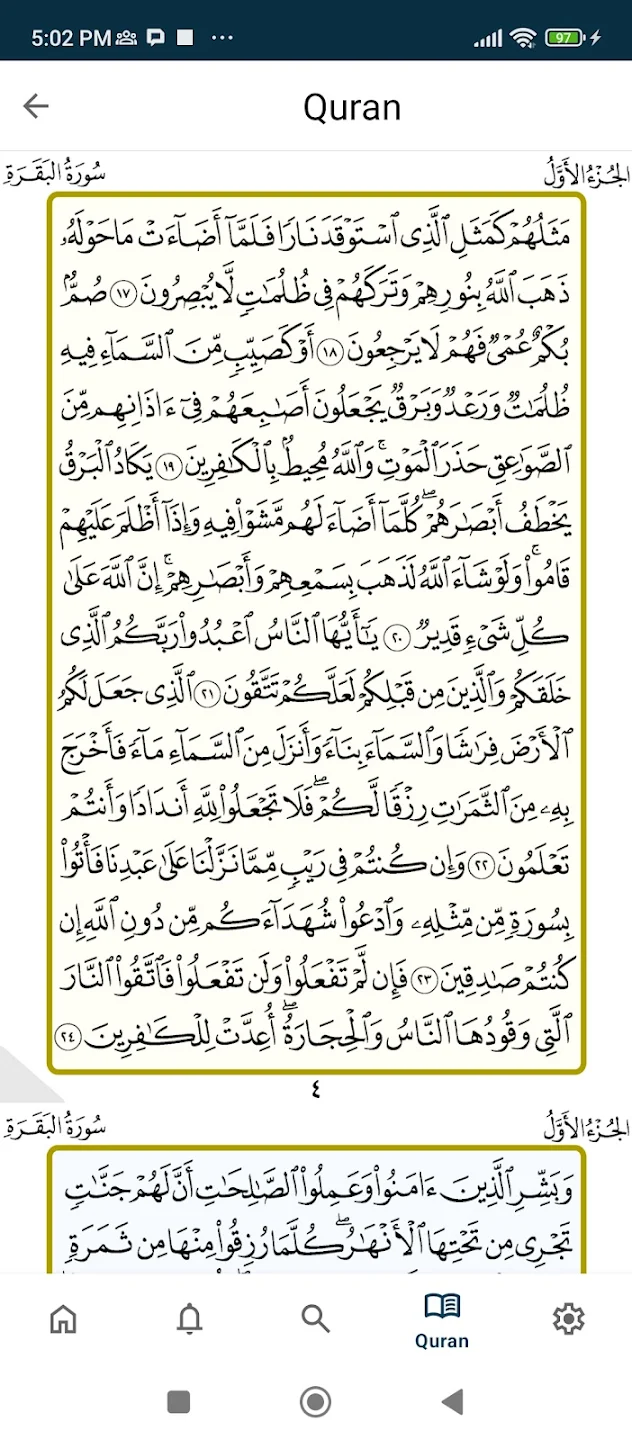 5:02 PM ... 97
Quran
الجُزْءُ الأَوَّلُ سُورَةُ البَقَرَةِ
مَثَلُهُمْ كَمَثَلِ ٱلَّذِى ٱسْتَوْقَدَ نَارًا فَلَمَّآ أَضَآءَتْ مَا حَوْلَهُۥ
ذَهَبَ ٱللَّهُ بِنُورِهِمْ وَتَرَكَهُمْ فِى ظُلُمَٰتٍ لَّا يُبْصِرُونَ ١٧ صُمٌّۢ
بُكْمٌ عُمْىٌ فَهُمْ لَا يَرْجِعُونَ ١٨ أَوْ كَصَيِّبٍ مِّنَ ٱلسَّمَآءِ فِيهِ
ظُلُمَٰتٌ وَرَعْدٌ وَبَرْقٌ يَجْعَلُونَ أَصَٰبِعَهُمْ فِىٓ ءَاذَانِهِم مِّنَ
ٱلصَّوَٰعِقِ حَذَرَ ٱلْمَوْتِ ۚ وَٱللَّهُ مُحِيطٌۢ بِٱلْكَٰفِرِينَ ١٩ يَكَادُ ٱلْبَرْقُ
يَخْطَفُ أَبْصَٰرَهُمْ ۖ كُلَّمَآ أَضَآءَ لَهُم مَّشَوْا۟ فِيهِ وَإِذَآ أَظْلَمَ عَلَيْهِمْ
قَامُوا۟ ۚ وَلَوْ شَآءَ ٱللَّهُ لَذَهَبَ بِسَمْعِهِمْ وَأَبْصَٰرِهِمْ ۚ إِنَّ ٱللَّهَ عَلَىٰ
كُلِّ شَىْءٍ قَدِيرٌ ٢٠ يَٰٓأَيُّهَا ٱلنَّاسُ ٱعْبُدُوا۟ رَبَّكُمُ ٱلَّذِى
خَلَقَكُمْ وَٱلَّذِينَ مِن قَبْلِكُمْ لَعَلَّكُمْ تَتَّقُونَ ٢١ ٱلَّذِى جَعَلَ لَكُمُ
ٱلْأَرْضَ فِرَٰشًا وَٱلسَّمَآءَ بِنَآءً وَأَنزَلَ مِنَ ٱلسَّمَآءِ مَآءً فَأَخْرَجَ
بِهِۦ مِنَ ٱلثَّمَرَٰتِ رِزْقًا لَّكُمْ ۖ فَلَا تَجْعَلُوا۟ لِلَّهِ أَندَادًا وَأَنتُمْ
تَعْلَمُونَ ٢٢ وَإِن كُنتُمْ فِى رَيْبٍ مِّمَّا نَزَّلْنَا عَلَىٰ عَبْدِنَا فَأْتُوا۟
بِسُورَةٍ مِّن مِّثْلِهِۦ وَٱدْعُوا۟ شُهَدَآءَكُم مِّن دُونِ ٱللَّهِ إِن
كُنتُمْ صَٰدِقِينَ ٢٣ فَإِن لَّمْ تَفْعَلُوا۟ وَلَن تَفْعَلُوا۟ فَٱتَّقُوا۟ ٱلنَّارَ
ٱلَّتِى وَقُودُهَا ٱلنَّاسُ وَٱلْحِجَارَةُ ۖ أُعِدَّتْ لِلْكَٰفِرِينَ ٢٤
٤
الجُزْءُ الأَوَّلُ سُورَةُ البَقَرَةِ
وَبَشِّرِ ٱلَّذِينَ ءَامَنُوا۟ وَعَمِلُوا۟ ٱلصَّٰلِحَٰتِ أَنَّ لَهُمْ جَنَّٰتٍ
تَجْرِى مِن تَحْتِهَا ٱلْأَنْهَٰرُ ۖ كُلَّمَا رُزِقُوا۟ مِنْهَا مِن ثَمَرَةٍ
Quran